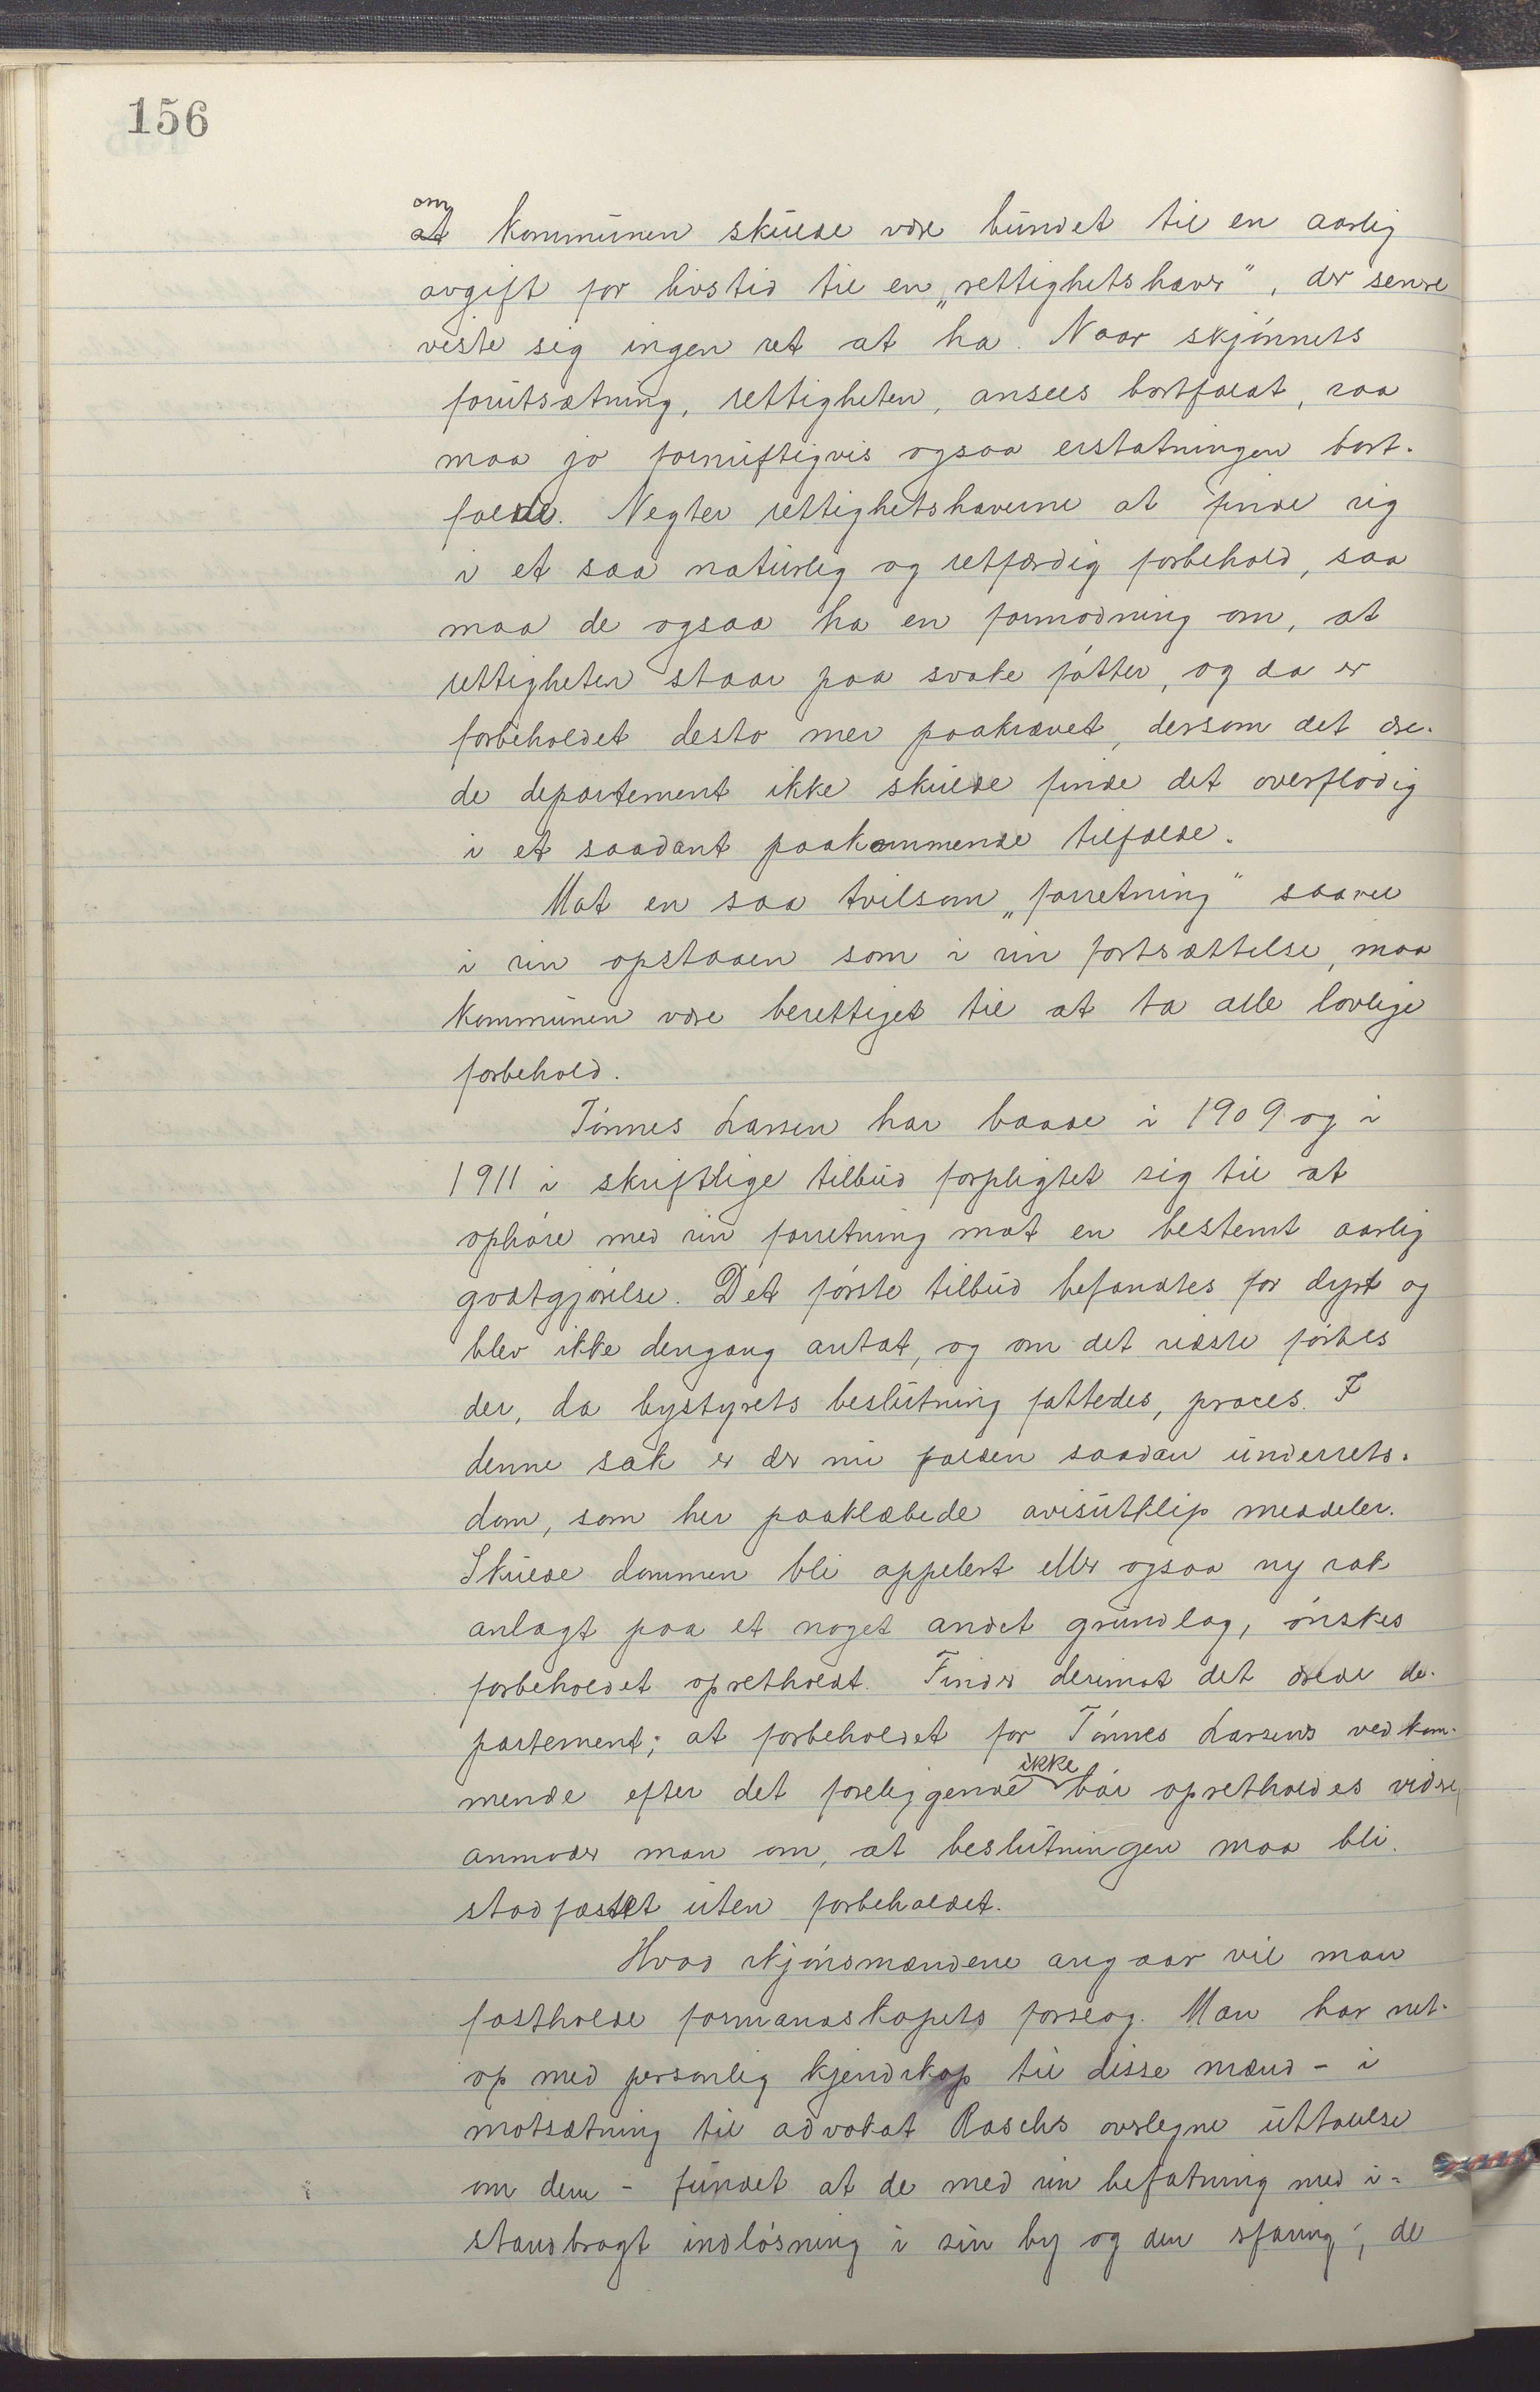 156
om
at kommunen skulde være bundet til en aarlig
avgift for livstid til en „rettighetshaver", der senere
viste sig ingen ret at ha. Naar skjønnets
forutsætning, rettigheten, ansees bortfaldt, saa
maa jo fornuftigvis ogsaa erstatningen bort-
falde. Negter rettighetshaverne at finde sig
i et saa naturlig og retfærdig forbehold, saa
maa de ogsaa ha en formodning om, at
rettigheten staar paa svake føtter, og da er
forbeholdet desto mer paakrævet, dersom det ære-
de departement ikke skulde finde det overflødig
i et saadant paakommende tilfælde.
Mot en saa tvilsom „forretning" saavel
i sin opstaaen som i sin fortsættelse, maa
kommunen være berettiget til at ta alle lovlige
forbehold.
Tønnes Larsen har baade i 1909 og i
1911 i skriftlige tilbud forpligtet sig til at
ophøre med sin forretning mot en bestemt aarlig
godtgjørelse. Det første tilbud befandtes for dyrt og
blev ikke dengang antat, og om det næste førtes
der, da bystyrets beslutning fattedes, proces. I
denne sak er der nu falden saadan underrets-
dom, som her paaklæbede avisutklip meddeler.
Skulde dommen bli appelert eller ogsaa ny sak
anlagt paa et noget andet grundlag, ønskes
forbeholdet opretholdt. Finder derimot det ærede de-
partement; at forbeholdet for Tønnes Larsens vedkom-
mende efter det foreliggende ikke bør opretholdes videre,
anmoder man om, at beslutningen maa bli
stadfæstet uten forbeholdet.
Hvad skjønsmændene angaar vil man
fastholde formandskapets forslag. Man har net-
op med personlig kjendskap til disse mænd - i
motsætning til advokat Raschs overlegne uttalelse
om dem - fundet at de med sin befatning med i-
standbragt indløsning i sin by og den erfaring, de